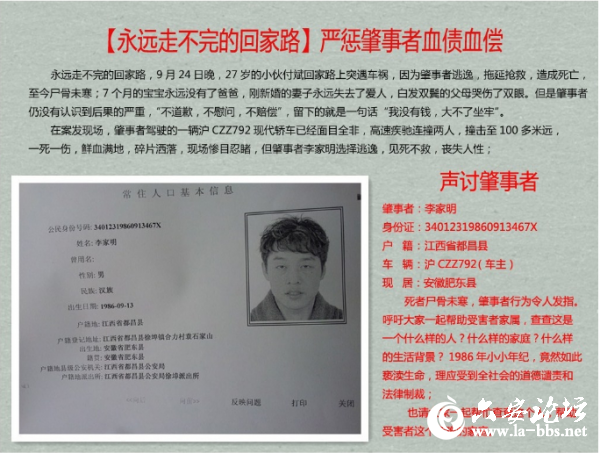 【永远走不完的回家路】严惩肇事者血债血偿
永远走不完的回家路，9 月 24 日晚，27 岁的小伙付斌回家路上突遇车祸，因为肇事者逃逸，拖延抢救，造成死亡，
至今尸骨未寒；7 个月的宝宝永远没有了爸爸，刚新婚的妻子永远失去了爱人，白发双鬓的父母哭伤了双眼。但是肇事者
仍没有认识到后果的严重，“不道歉，不慰问，不赔偿”，留下的就是一句话“我没有钱，大不了坐牢”。
在案发现场，肇事者驾驶的一辆沪 CZZ792 现代轿车已经面目全非，高速疾驰连撞两人，撞击至 100 多米远，
一死一伤，鲜血满地，碎片洒落，现场惨目忍睹，但肇事者李家明选择逃逸，见死不救，丧失人性；
常住人口基本信息
公民身份号码: 34012319860913467X
姓名: 李家明
曾用名:
性别: 男
民族: 汉族
出生日期: 1986-09-13
户籍地: 江西省都昌县
户籍登记地址: 江西省都昌县徐埠镇合力村袁石家山
出生地: 安徽省肥东县
籍贯: 安徽省肥东县
户籍地县级公安机关: 江西省都昌县公安局
户籍地派出所: 江西省都昌县公安局徐埠派出所
反映问题 打印 关闭
声讨肇事者
肇事者：李家明
身份证：34012319860913467X
户 籍：江西省都昌县
车 辆：沪 CZZ792（车主）
现 居：安徽肥东县
死者尸骨未寒，肇事者行为令人发指。
呼吁大家一起帮助受害者家属，查查这是
一个什么样的人？什么样的家庭？什么样
的生活背景？ 1986 年小小年纪，竟然如此
亵渎生命，理应受到全社会的道德谴责和
法律制裁；
也请
受害者这个
六安论坛
www.la-bbs.net